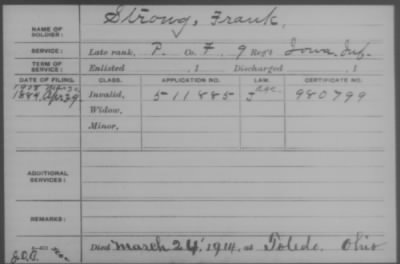 Strong, Frank.
NAME OF SOLDIER:
SERVICE: Late rank, P. Co. F, 9 Reg't Iowa Inf.
TERM OF SERVICE: Enlisted , 1 Discharged , 1
DATE OF FILING. CLASS. APPLICATION NO. LAW. CERTIFICATE NO.
1908
1884, Apr 29. Invalid, 511885 J 980799
Widow,
Minor,
ADDITIONAL SERVICES:
REMARKS:
Died March 24, 1914, at Toledo, Ohio